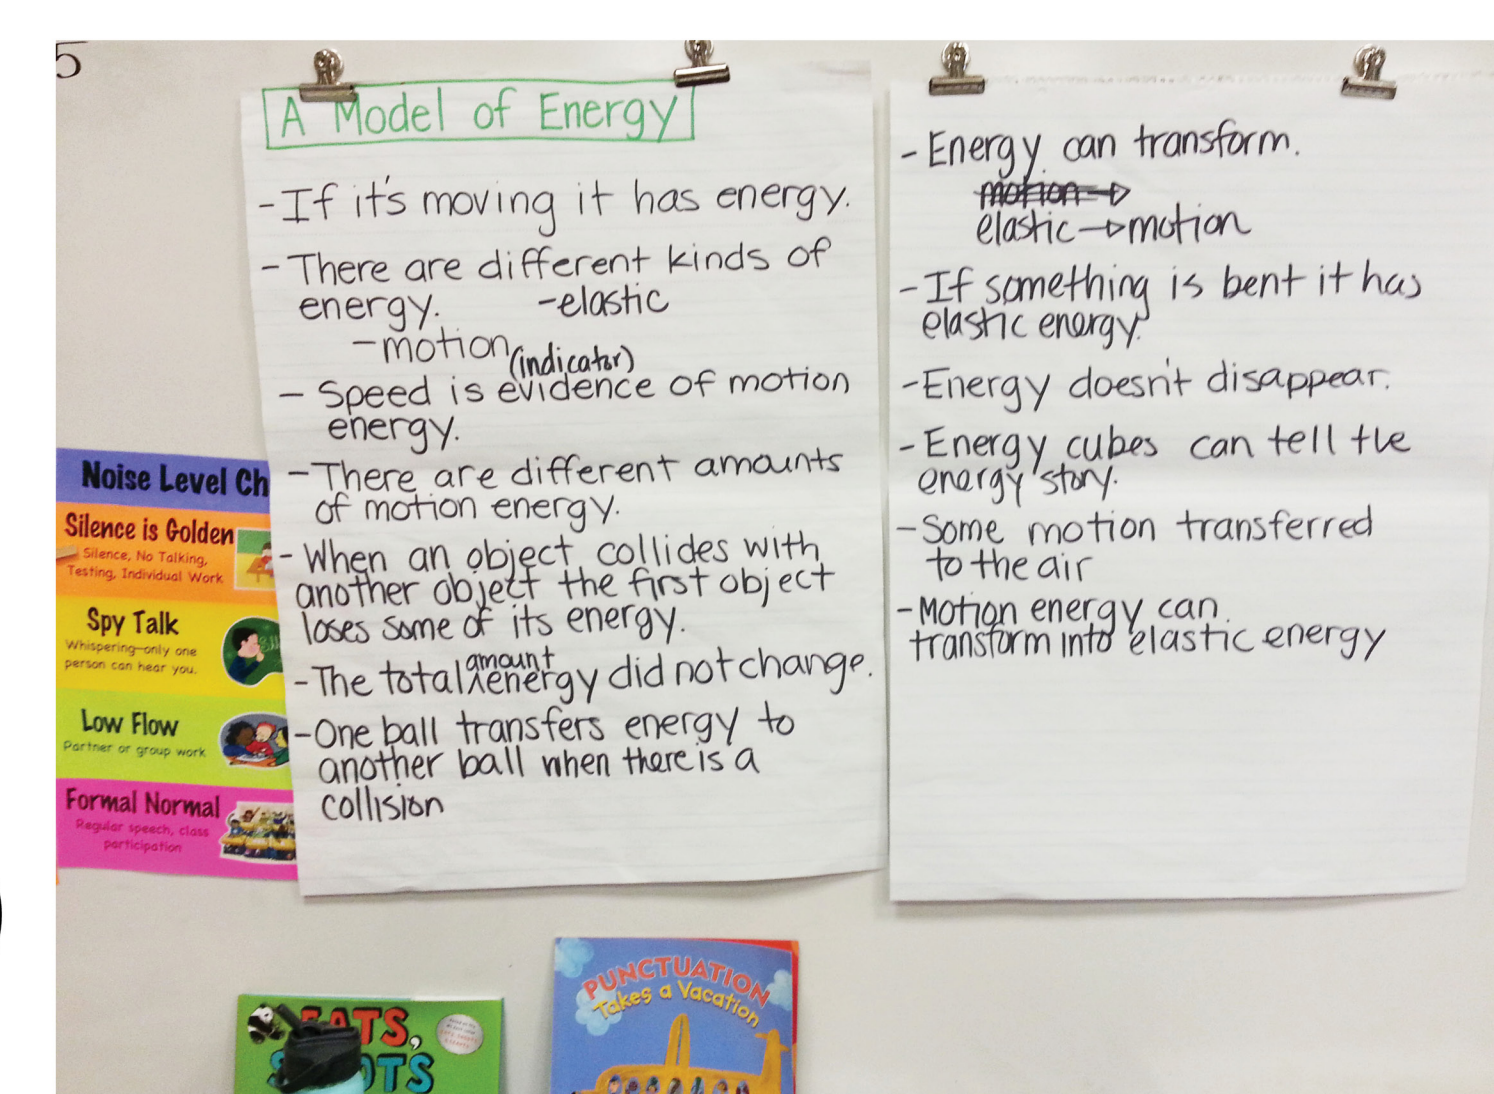 5
A Model of Energy
-If it's moving it has energy.
-There are different kinds of
energy. -elastic
-motion
(indicator)
- Speed is evidence of motion
energy.
-There are different amounts
of motion energy.
-When an object collides with
another object the first object
loses some of its energy.
amount
-The total ^ energy did not change.
-One ball transfers energy to
another ball when there is a
collision
-Energy can transform.
motion→
elastic→motion
-If something is bent it has
elastic energy.
-Energy doesn't disappear.
-Energy cubes can tell the
energy story.
-Some motion transferred
to the air
-Motion energy can
transform into elastic energy
Noise Level Ch
Silence is Golden
Silence, No Talking,
Testing, Individual Work
Spy Talk
Whispering—only one
person can hear you.
Low Flow
Partner or group work
Formal Normal
Regular speech, class
participation
EATS,
S OTS
PUNCTUATION
Takes a Vacation